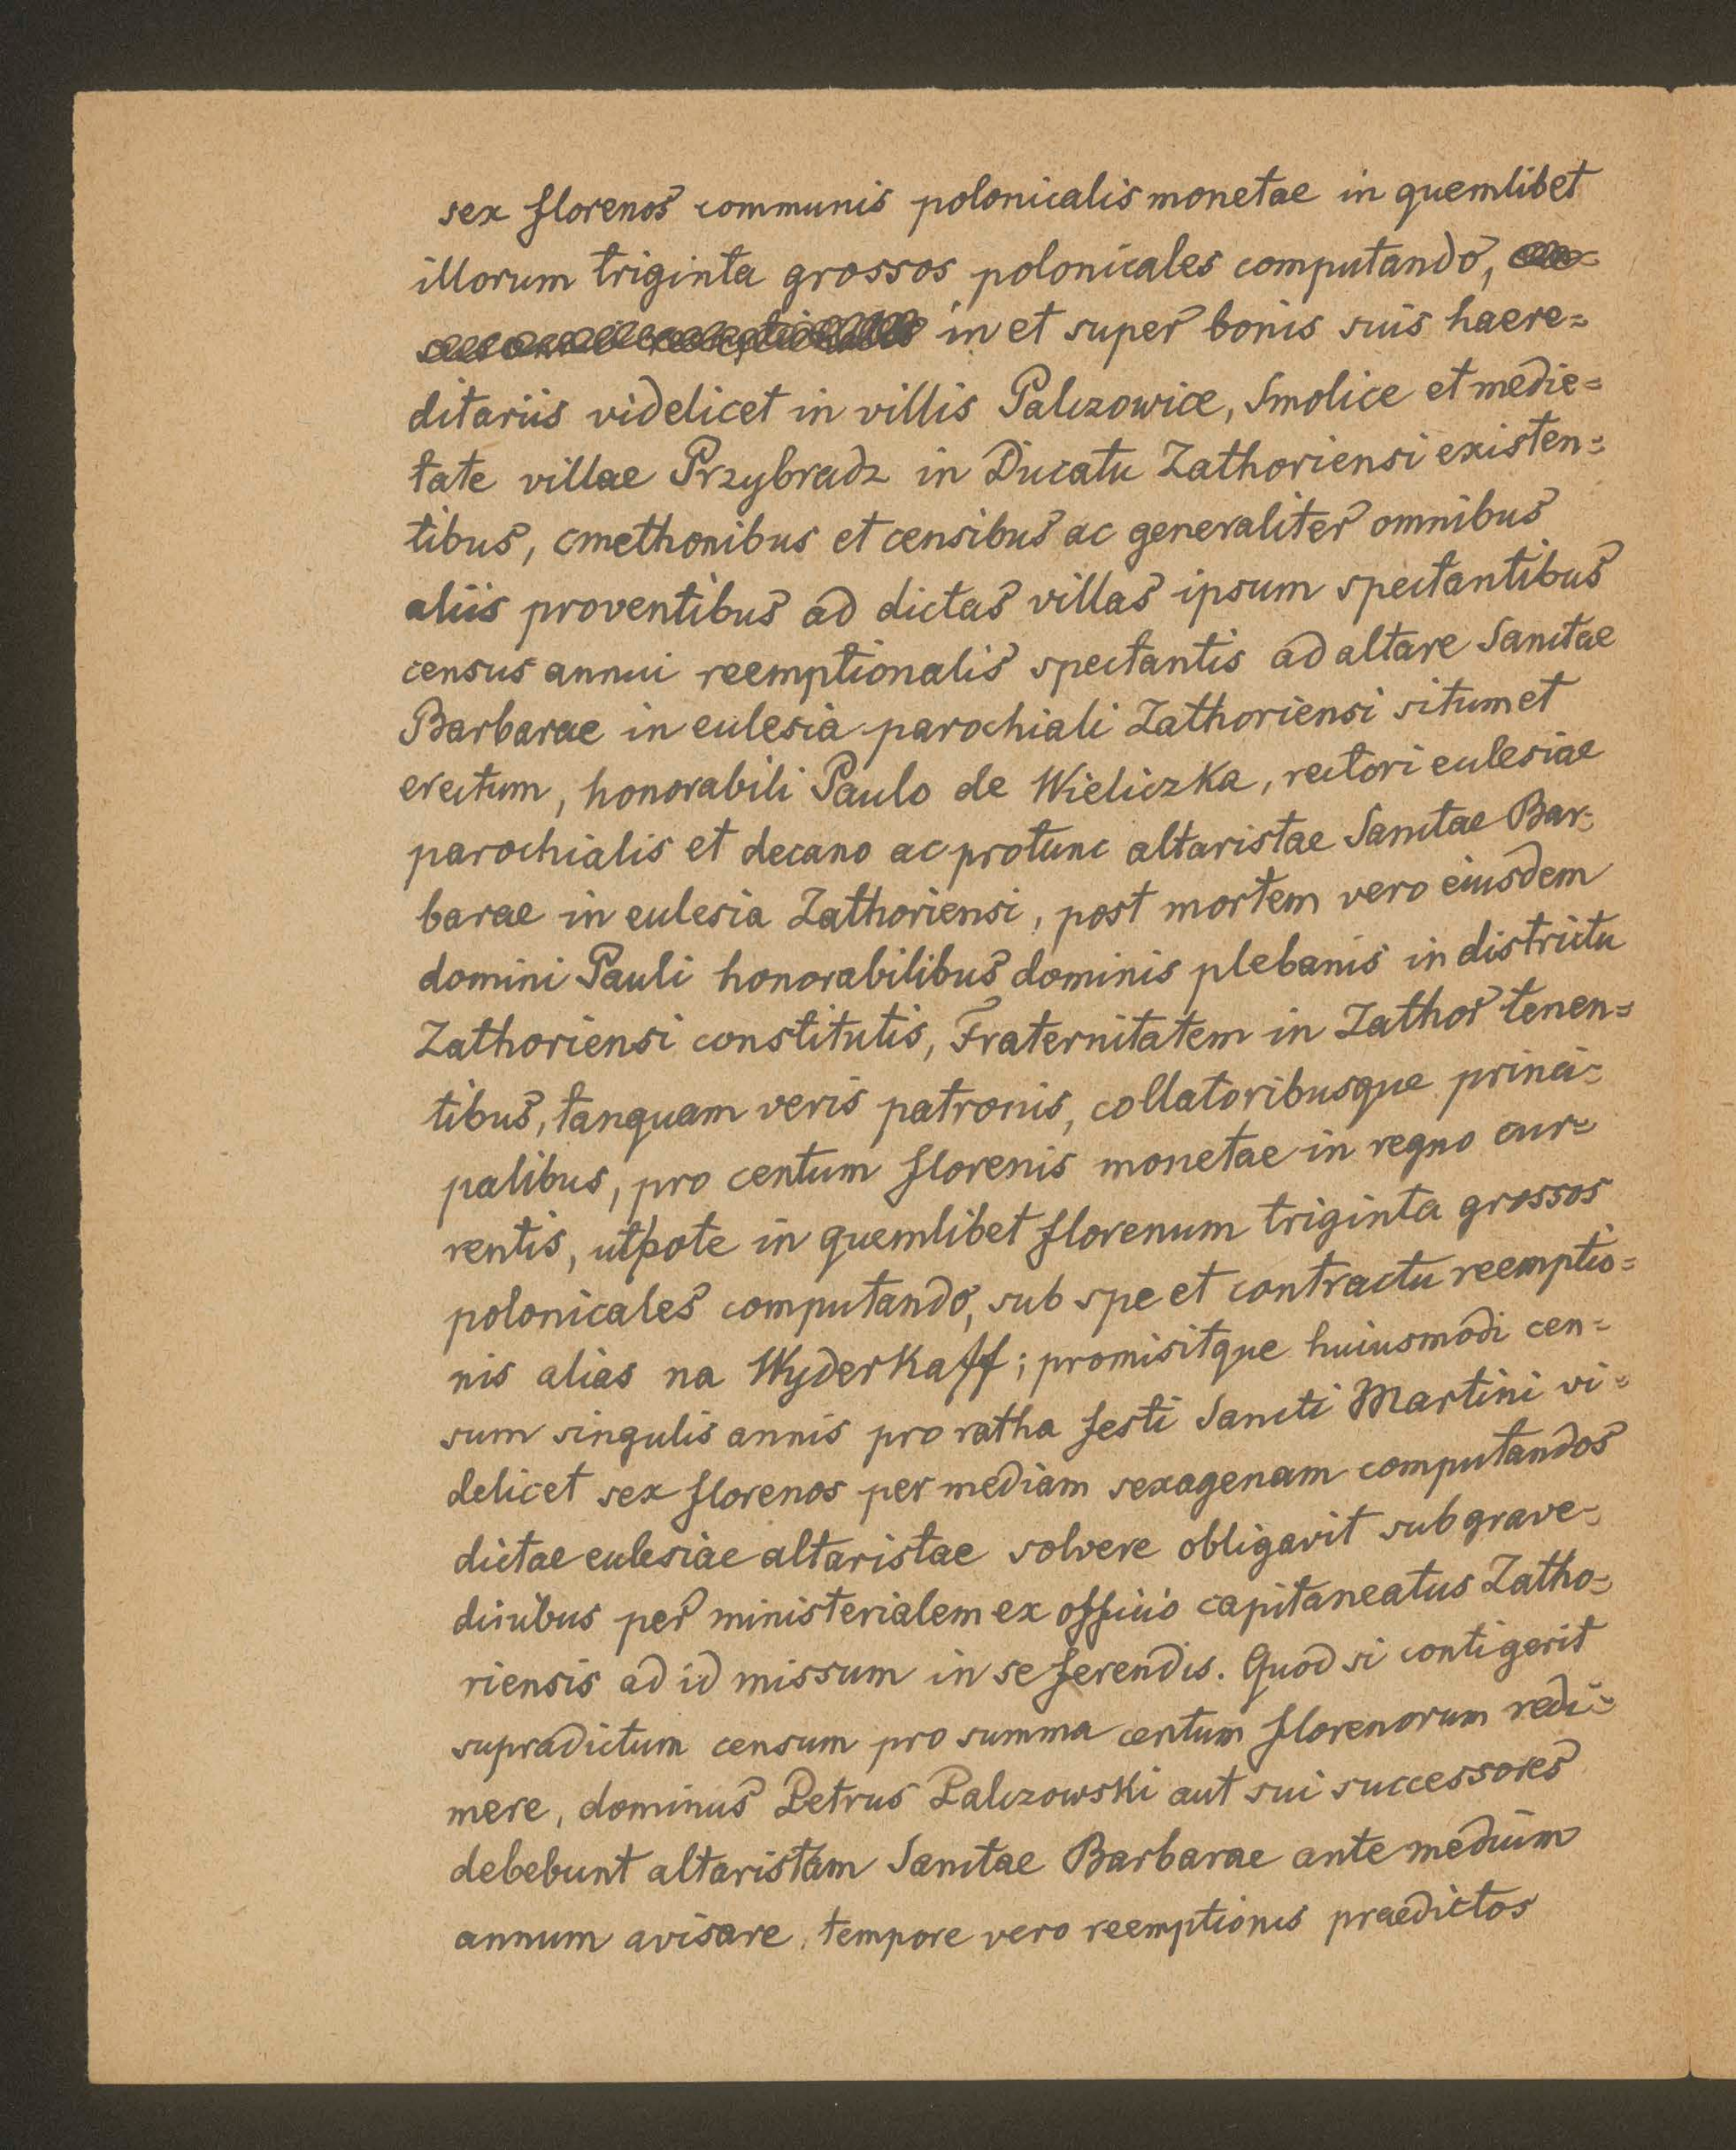 sex florenos communis polonicalis monetae in quemlibet
illorum triginta grossos polonicales computando,
in et super bonis suis haere=
ditariis videlicet in villis Palczowice, Smolice et medie=
tate villae Przybradz in Ducatu Zathoriensi existen=
tibus, cmethonibus et censibus ac generaliter omnibus
aliis proventibus ad dictas villas ipsum spectantibus
census annui reemptionalis spectantis ad altare Sanctae
Barbarae in ecclesia parochiali Zathoriensi situm et
erectum, honorabili Paulo de Wieliczka, rectori ecclesiae
parochialis et decano ac protunc altaristae Sanctae Bar=
barae in ecclesia Zathoriensi, post mortem vero eiusdem
domini Pauli honorabilibus dominis plebanis in districtu
Zathoriensi constitutis, Fraternitatem in Zathor tenen=
tibus, tanquam veris patronis, collatoribusque princi=
palibus, pro centum florenis monetae in regno cur=
rentis, utpote in quemlibet florenum triginta grossos
polonicales computando, sub spe et contractu reemptio=
nis alias na Wyderkaff; promisitque huiusmodi cen=
sum singulis annis pro ratha festi Sancti Martini vi=
delicet sex florenos per mediam sexagenam computandos
dictae ecclesiae altaristae solvere obligavit sub grave=
dinibus per ministerialem ex officio capitaneatus Zatho=
riensis ad id missum in se ferendis. Quod si contigerit
supradictum censum pro summa centum florenorum redi=
mere, dominus Petrus Palczowski aut sui successores
debebunt altaristam Sanctae Barbarae ante medium
annum avisare, tempore vero reemptionis praedictos